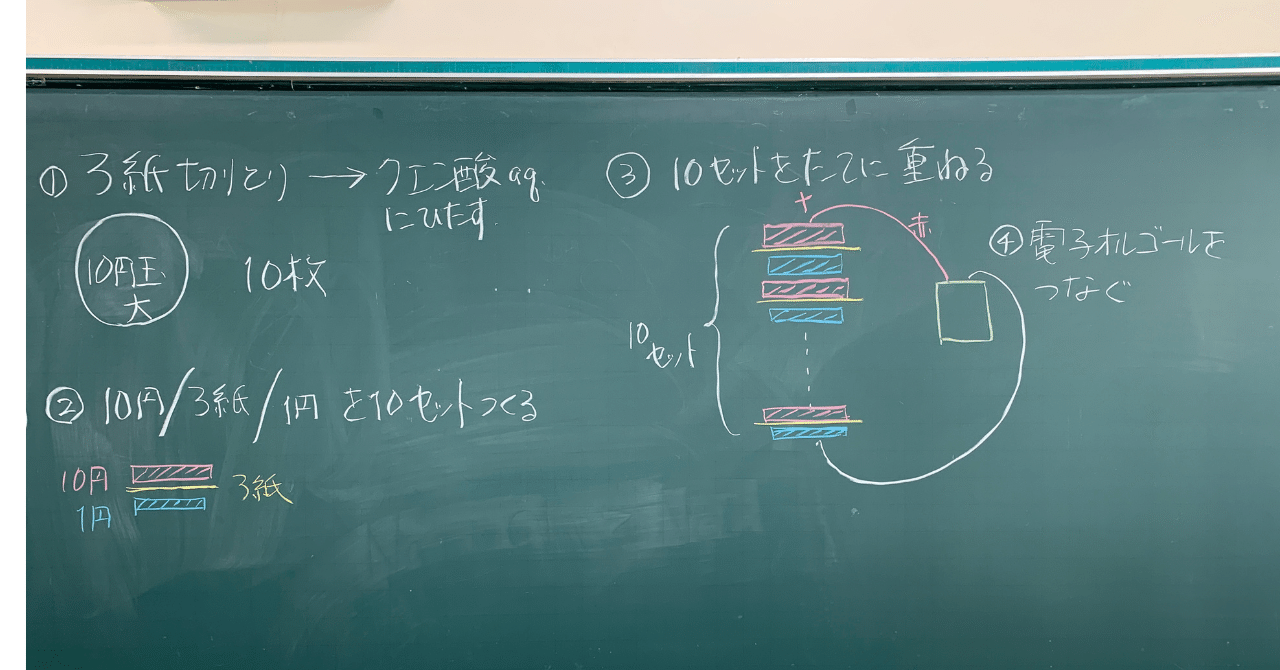 ① ろ紙切りとり → クエン酸aq.
にひたす.
10円玉
大
10枚
② 10円/ろ紙/1円 を10セットつくる
10円
1円
ろ紙
③ 10セットをたてに重ねる
+
赤
10
セット
④ 電子オルゴールを
つなぐ